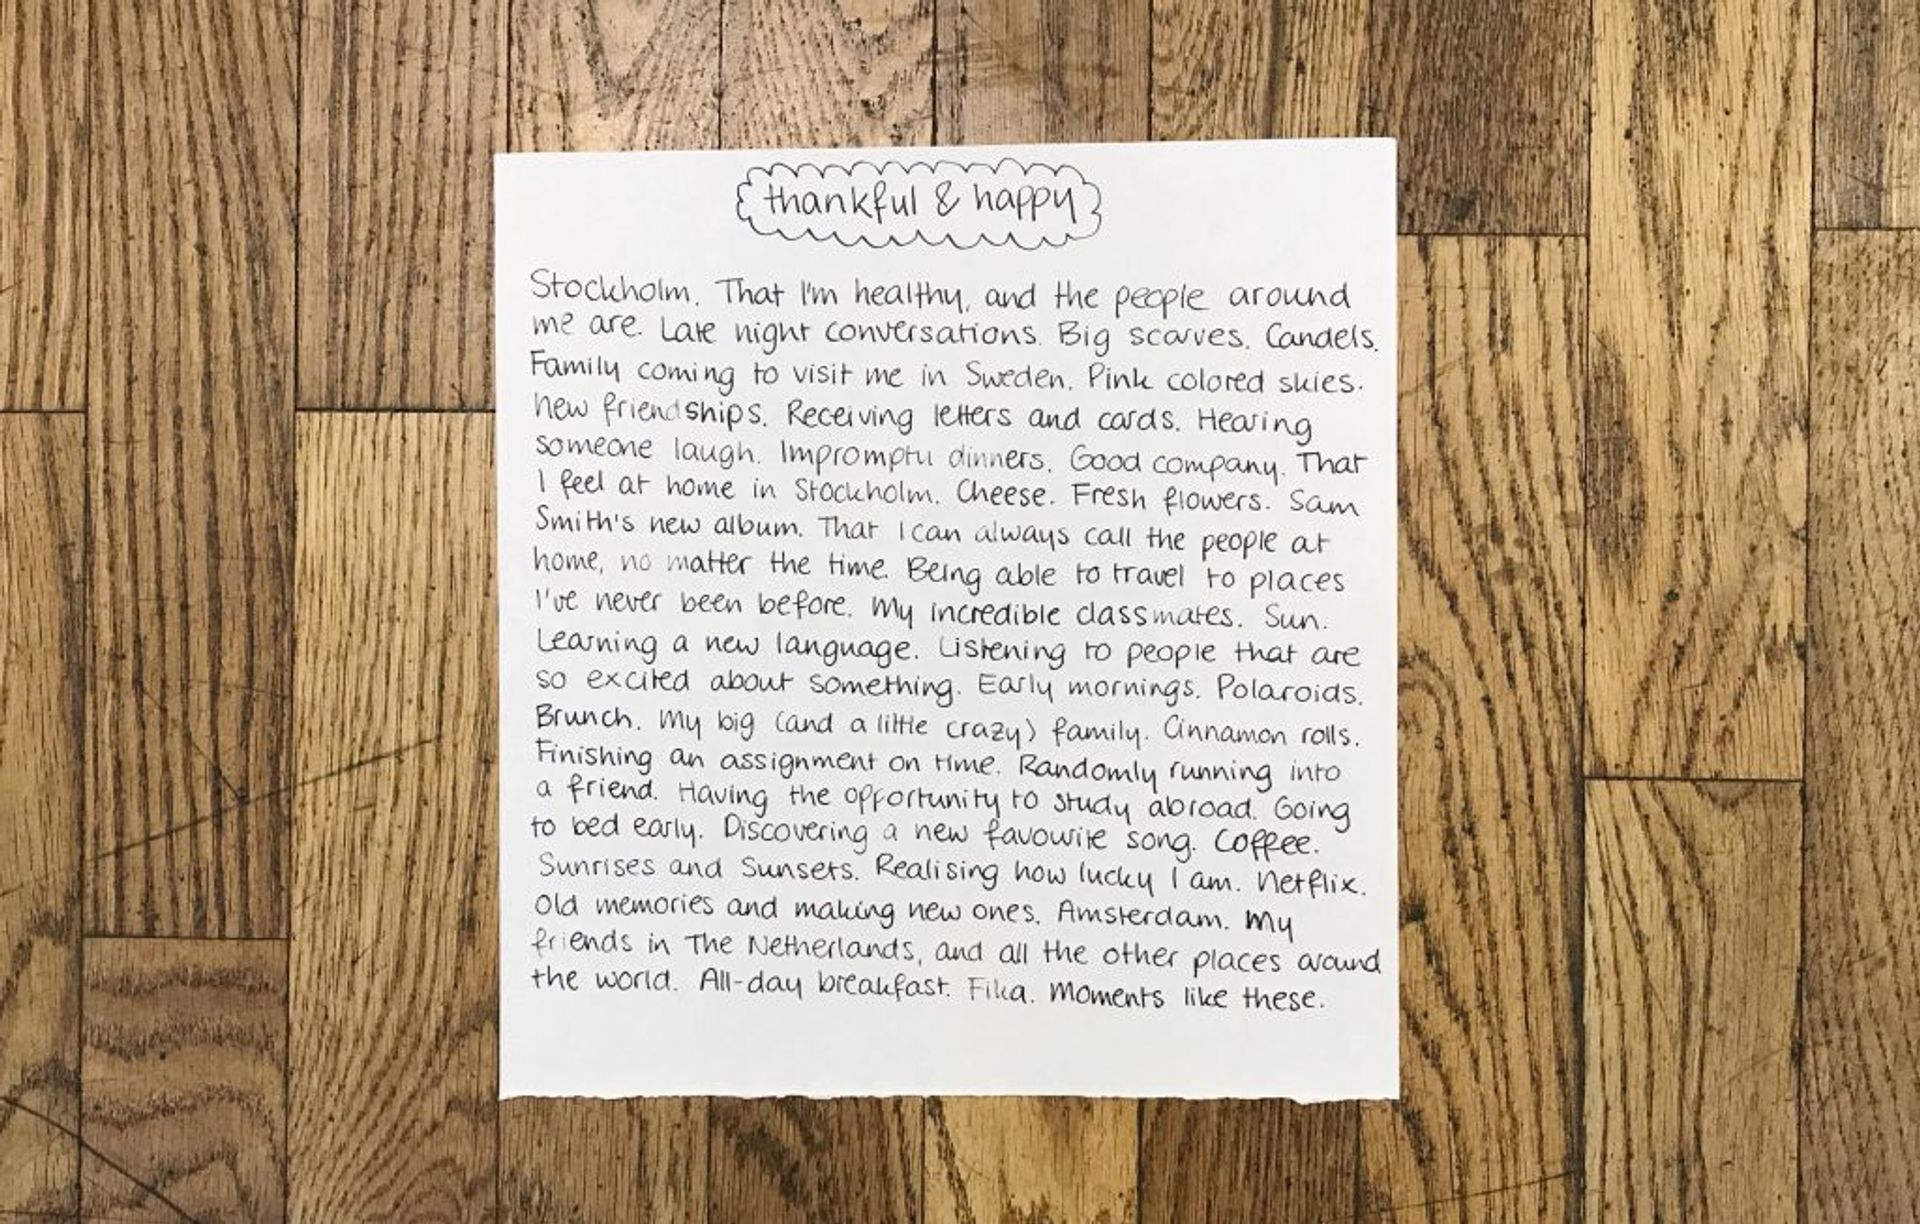 thankful & happy
Stockholm. That I'm healthy, and the people around
me are. Late night conversations. Big scarves. Candels.
Family coming to visit me in Sweden. Pink colored skies.
New friendships. Receiving letters and cards. Hearing
someone laugh. Impromptu dinners. Good company. That
I feel at home in Stockholm. Cheese. Fresh flowers. Sam
Smith's new album. That I can always call the people at
home, no matter the time. Being able to travel to places
I've never been before. My incredible classmates. Sun.
Learning a new language. Listening to people that are
so excited about something. Early mornings. Polaroids.
Brunch. My big (and a little crazy) family. Cinnamon rolls.
Finishing an assignment on time. Randomly running into
a friend. Having the opportunity to study abroad. Going
to bed early. Discovering a new favourite song. Coffee.
Sunrises and Sunsets. Realising how lucky I am. Netflix.
Old memories and making new ones. Amsterdam. My
friends in The Netherlands, and all the other places around
the world. All-day breakfast. Fika. Moments like these.